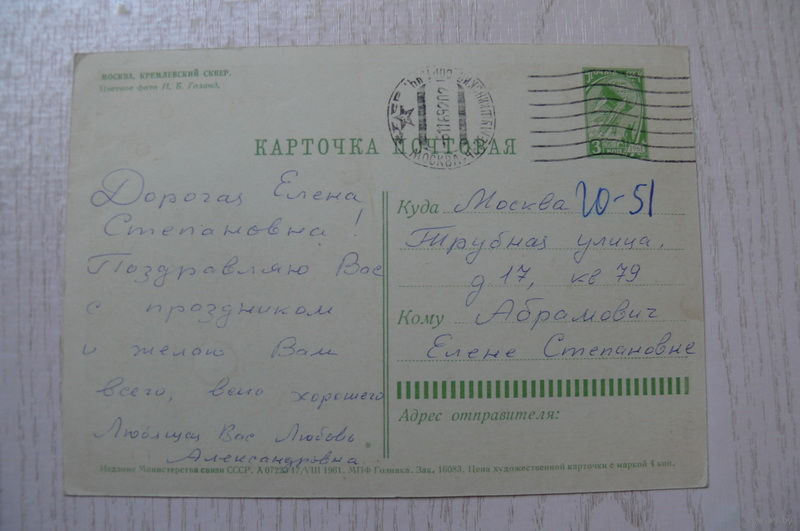 МОСКВА. КРЕМЛЕВСКИЙ СКВЕР.
Цветное фото Н. Б. Голанд.
КАРТОЧКА ПОЧТОВАЯ
МОСКВА
3
Дорогая Елена
Степановна!
Поздравляю Вас
с праздником
и желаю Вам
всего, всего хорошего
Любящая Вас Любовь
Александровна
Куда Москва Ю-51
Трубная улица,
д 17, кв 79
Кому Абрамович
Елене Степановне
Адрес отправителя:
Издание Министерства связи СССР. А 07223 17/VIII 1961. МПФ Гознака. Зак. 16083. Цена художественной карточки с маркой 4 коп.